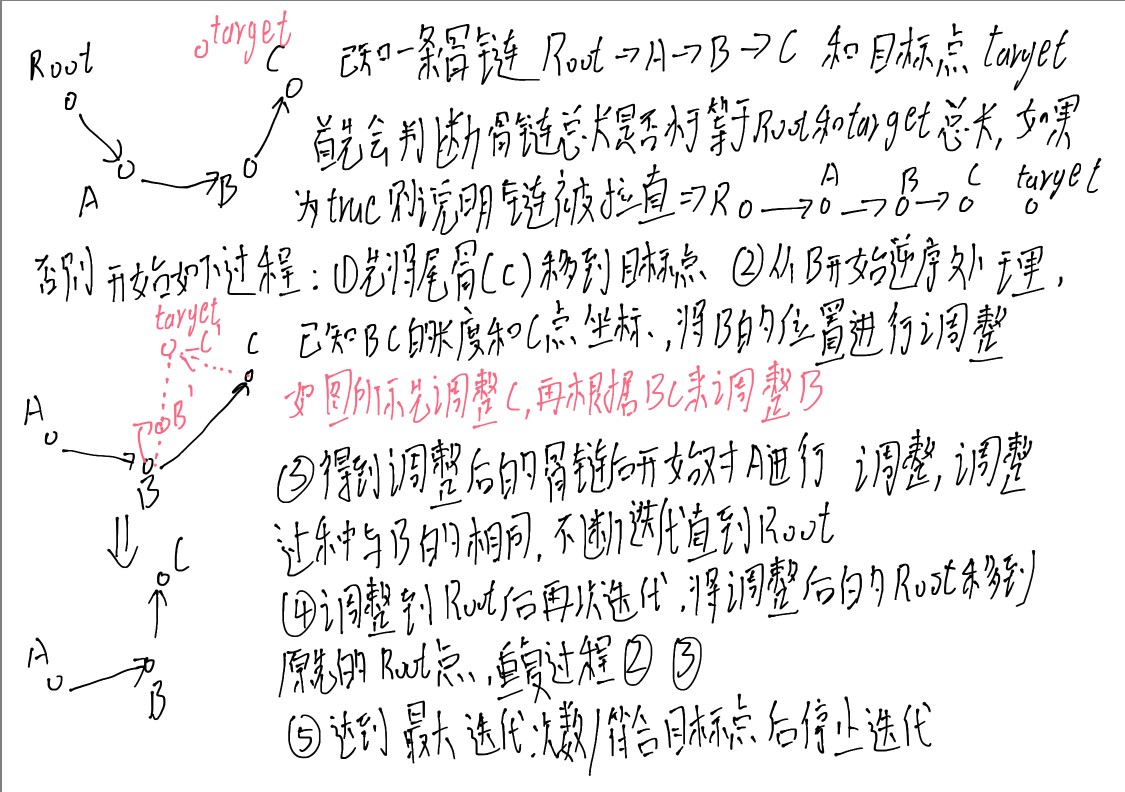 target
Root
C
A
B
已知一条骨链 Root→A→B→C 和目标点 target
首先会判断骨链总长是否小于等于Root和target总长,如果
为true则说明链被拉直⇒R A B C target
否则开始如下过程:①先将尾骨(C)移到目标点 ②从B开始逆序处理,
已知BC的长度和C点坐标,将B的位置进行调整
如图所示先调整C,再根据BC来调整B
target
C'
C
A
B'
B
③得到调整后的骨链后开始对A进行 调整,调整
过程与B的相同,不断迭代直到Root
④调整到Root后再次迭代,将调整后的Root移到
原先的Root点,重复过程② ③
⑤达到最大迭代次数/符合目标点后停止迭代
C
A
B